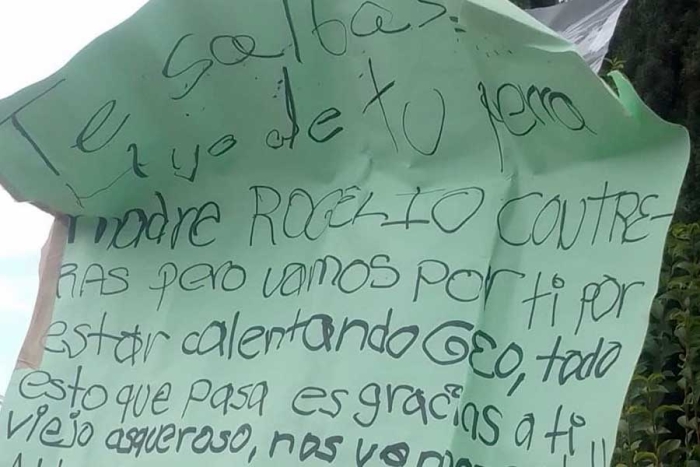 Te salbas
hijo de tu perra
madre ROGELIO CONTRE-
RAS pero vamos por ti por
estar calentando GEO, todo
esto que pasa es gracias a ti
viejo asqueroso, nos vemos